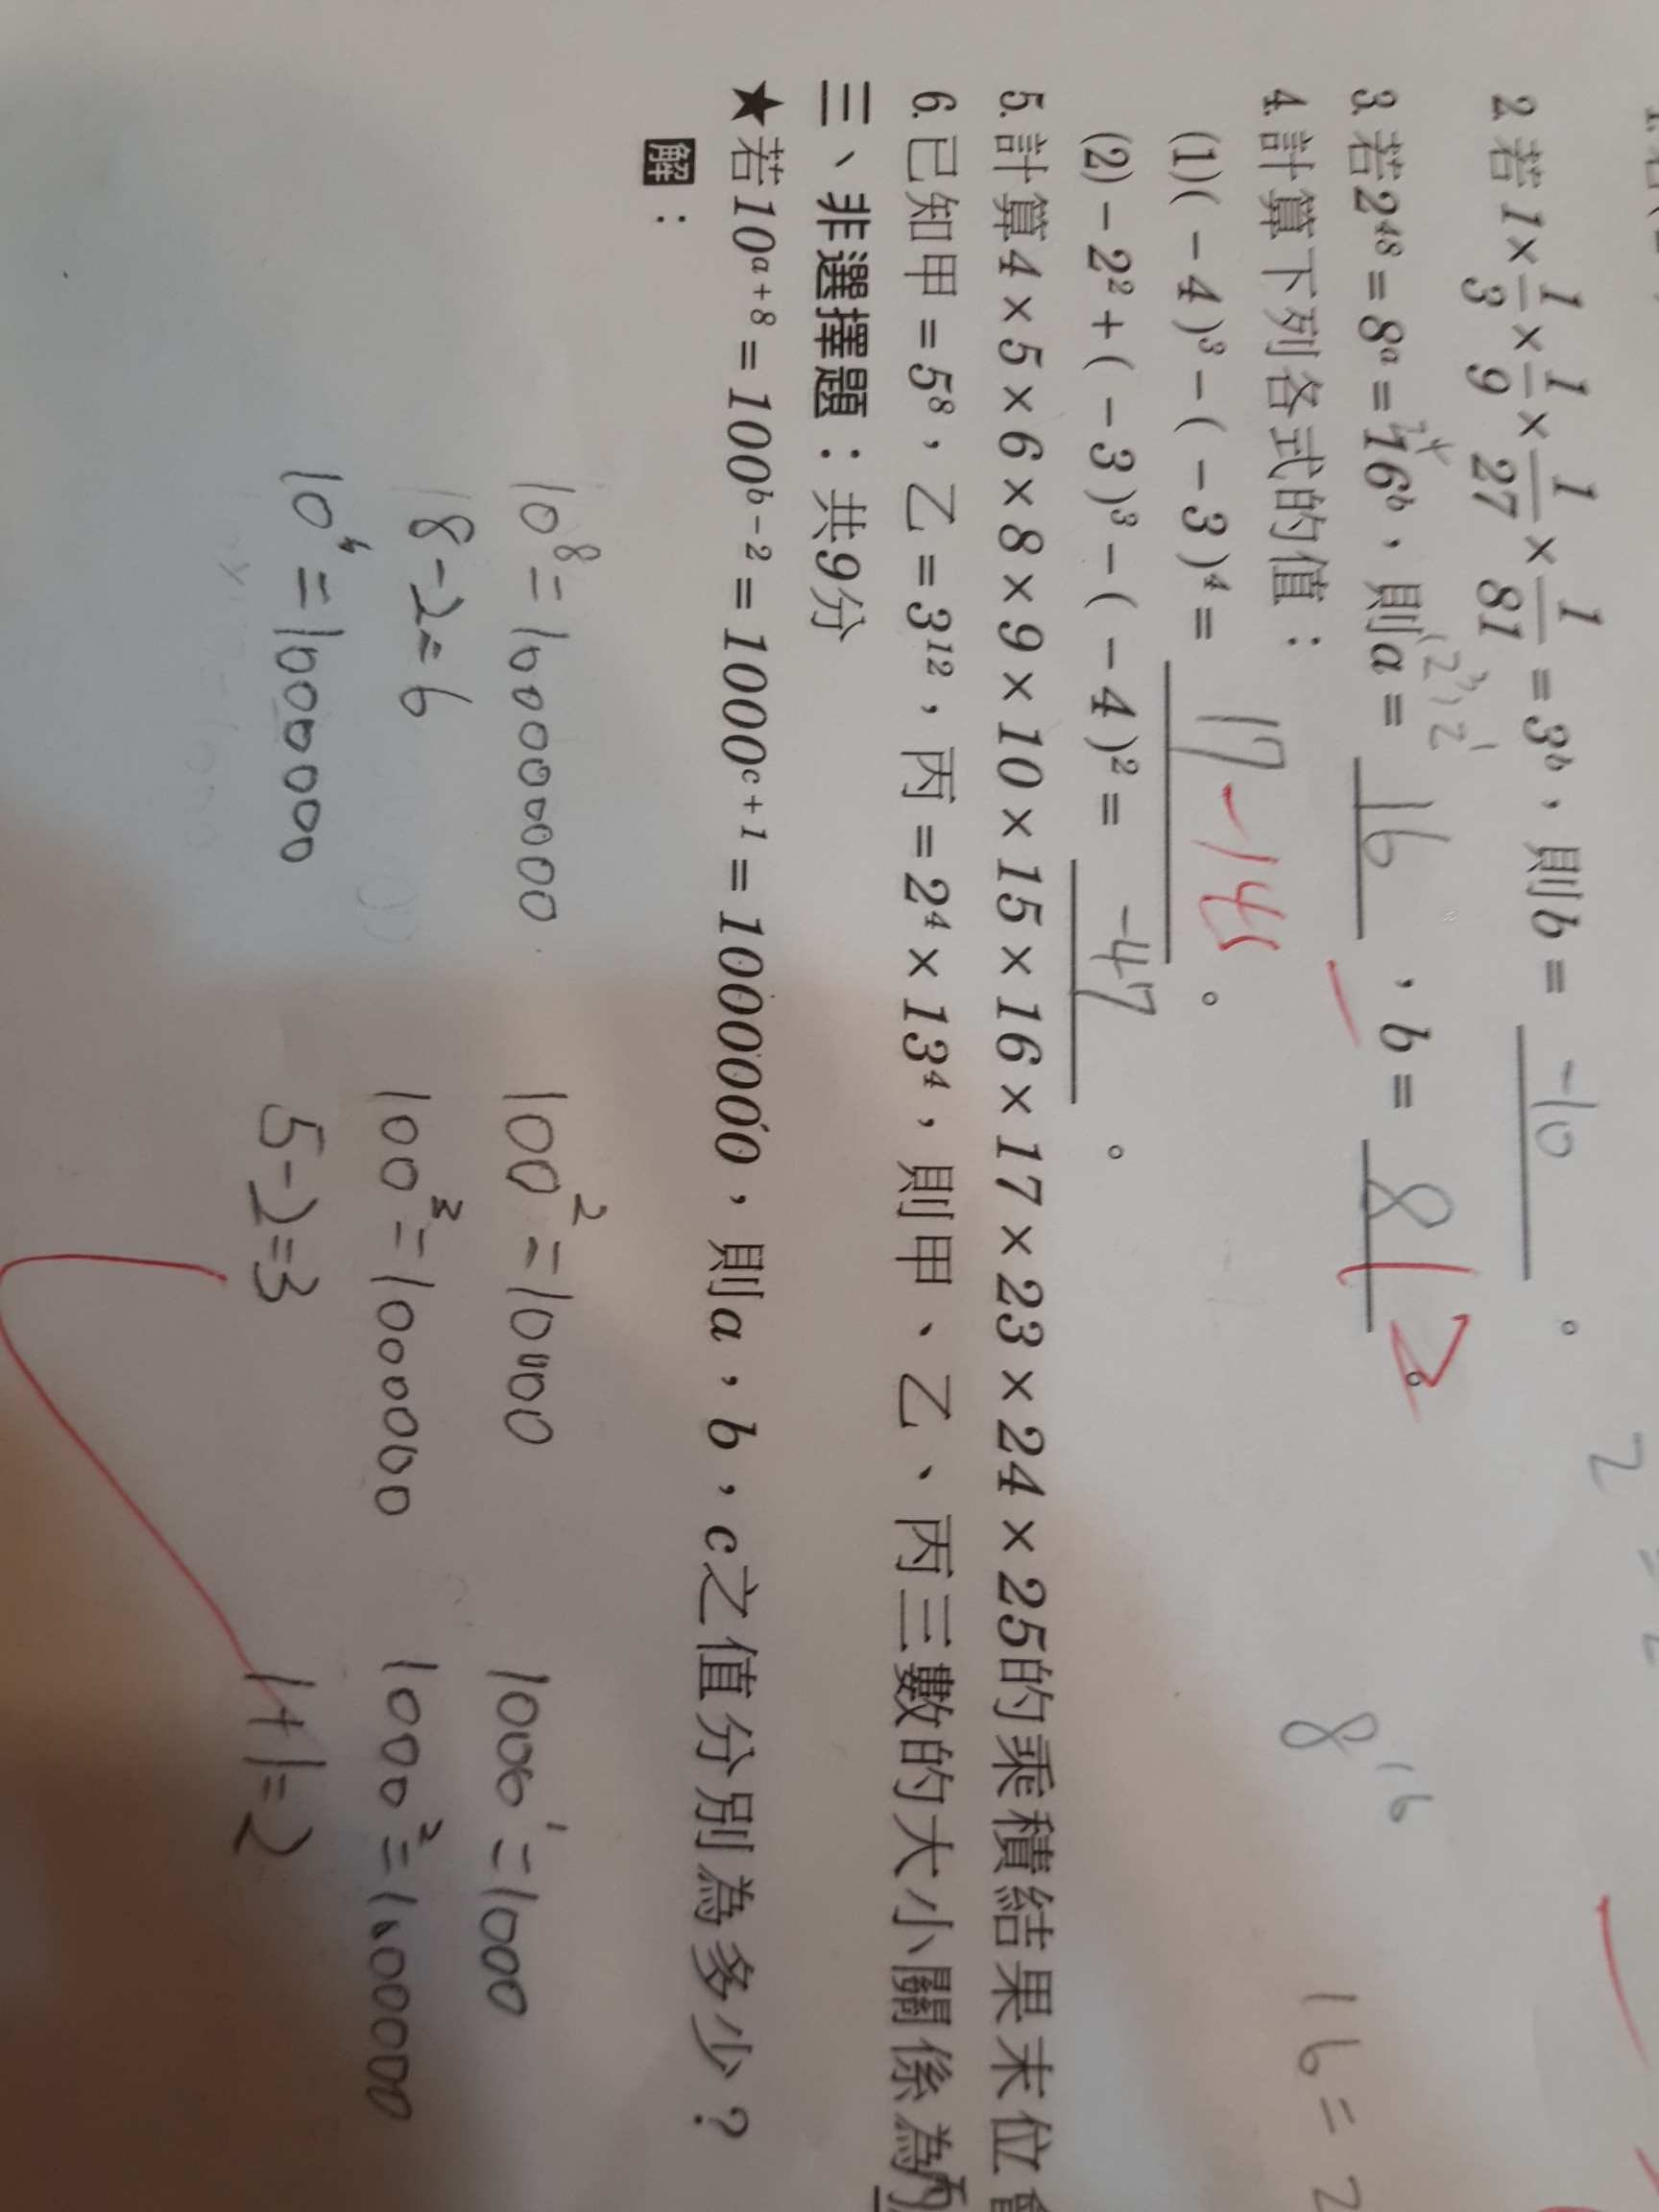 2.若1×1/3×1/9×1/27×1/81=3ᵇ，則b= -10 。
3.若2⁴⁸=8ᵃ=16ᵇ，則a= 16 ，b= 8 12 。
4.計算下列各式的值：
(1)(-4)³-(-3)⁴= 17 -145 。
(2)-2²+(-3)³-(-4)²= -47 。
5.計算4×5×6×8×9×10×15×16×17×23×24×25的乘積結果末位
6.已知甲=5⁸，乙=3¹²，丙=2⁴×13⁴，則甲、乙、丙三數的大小關係為
三、非選擇題：共9分
★若10ᵃ⁺⁸=100ᵇ⁻²=1000ᶜ⁺¹=1000000，則a，b，c之值分別為多少？
解：
8¹⁶
16=2
100²=10000
1000¹=1000
18-2=6
100³=1000000
1000²=1000000
5-2=3
1+1=2